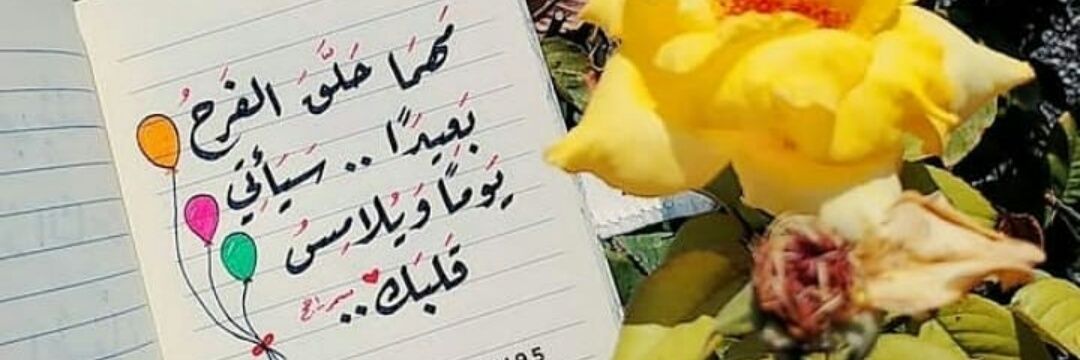 مَهمَا حَلَّقَ الفَرَحُ
بَعِيدًا .. سَيَأتِي
يَومًا وَيُلامِسُ
قَلبَك ..